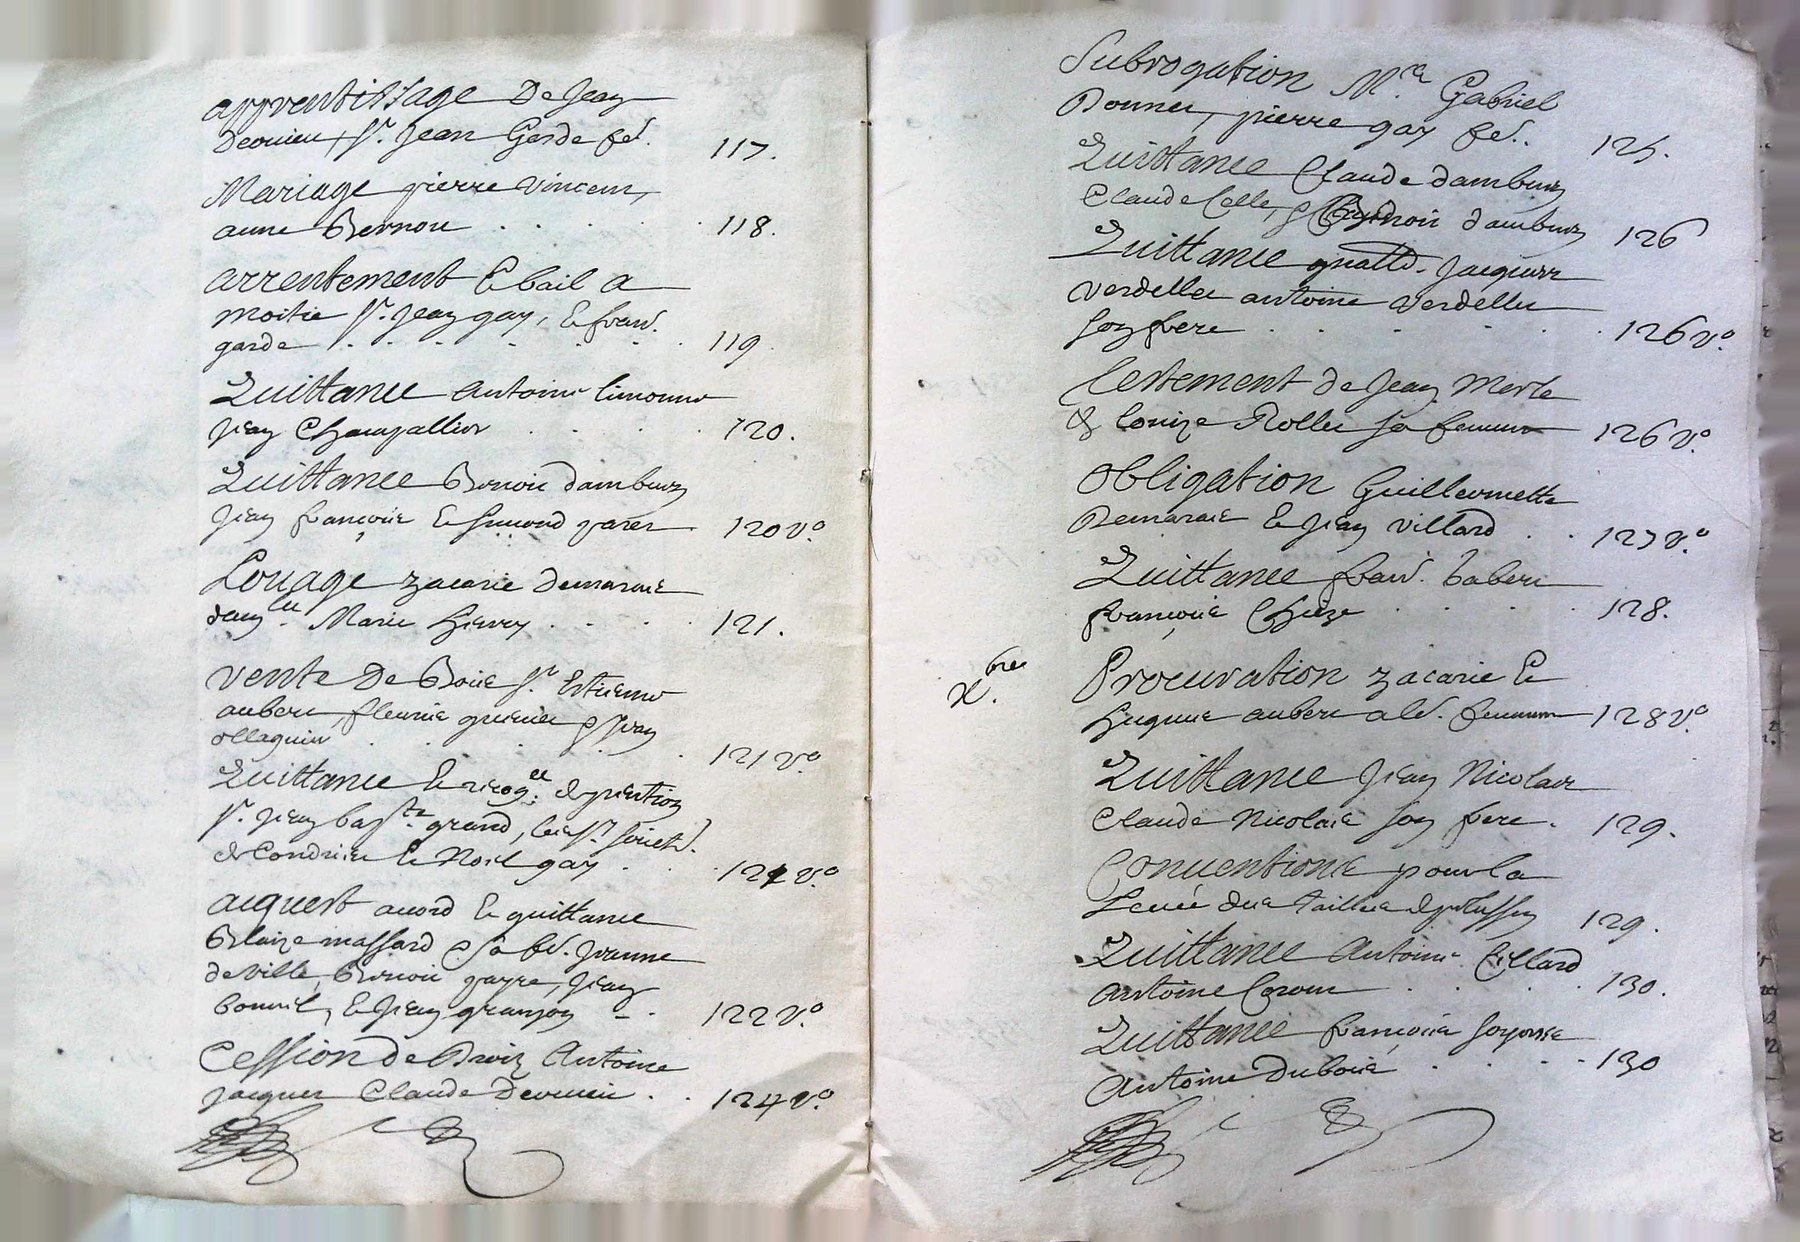 apprentissage De Jean
Devuieu, sr. Jean Garde fel. 117.
Mariage pierre vincent,
anne Bernou 118.
arrentement & bail a
moitie sr. Jean gay, & franc.
garde 119
Quittance Antoine limonne
Jean Champallier 120.
Quittance Benoit dambuen
Jean françois & Simond parer 120 vo.
Louage zacarie demarais
damlle. Marie Thierry 121.
vente De Bois sr. Estienne
aubert, fleurie & Jean
ollagnier 121 vo.
Quittance & recogce. de pention
sr. Jean bapte. grand, les srs societ.
de Condrieu & Noel gay 121 vo.
aiquest acord & quittance
Blaize massard & sa fe. Jeanne
deville, Benoit payre, Jean
bonnel, & Jean granjon 122 vo.
Cession de Droitz Antoine
Jacques Claude Devuieu 124 vo.
Subrogation Mre. Gabriel
Donnet, pierre gay fel. 125.
Quittance Claude dambuen
Claude Celle, & Benoit dambuen 126
Quittance Jacques
verdellet antoine verdellet
son frere 126 vo.
Testement de Jean Merle
& louize Rollet sa femme 126 vo.
Obligation Guillermette
Demarais & Jean villard 127 vo.
Quittance franc. tabert
françois Chieze 128.
Xbre.
Procuration zacarie &
hugues aubert a leur femme 128 vo.
Quittance Jean Nicolas
Claude Nicolas son frere. 129.
Conventions pour la
Levée des tailles de pelussin 129.
Quittance Antoine Cillard
Antoine Coront 130.
Quittance françois soyonse
Antoine Dubois 130